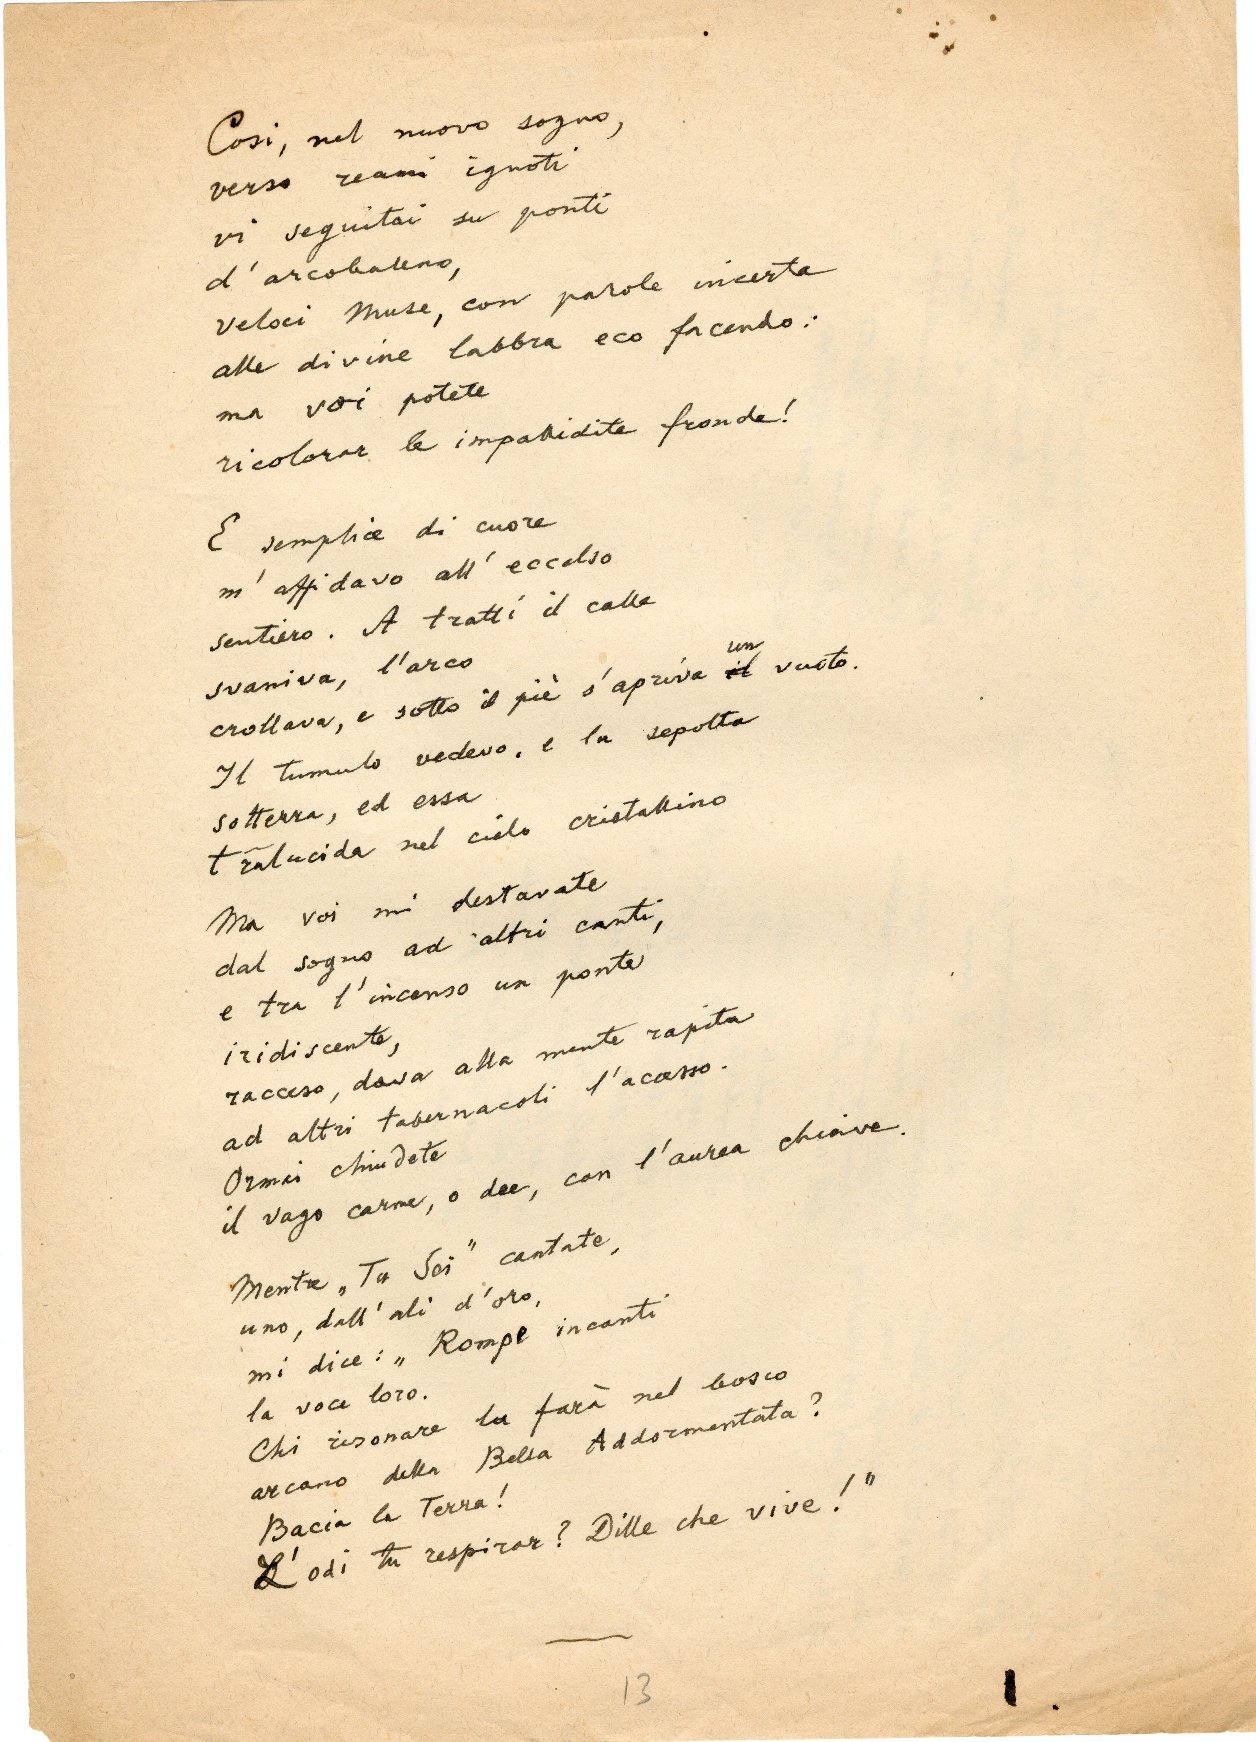 Così, nel nuovo sogno,
verso reami ignoti
vi seguitai su ponti
d'arcobaleno,
veloci Muse, con parole incerte
alle divine labbra eco facendo:
ma voi potete
ricolorar le impallidite fronde!
E semplice di cuore
m'affidavo all'eccelso
sentiero. A tratti il calle
svaniva, l'arco
crollava, e sotto il piè s'apriva il un vuoto.
Il tumulo vedevo, e la sepolta
sotterra, ed essa
tralucida nel cielo cristallino
Ma voi mi destavate
dal sogno ad altri canti,
e tra l'incenso un ponte
iridiscente,
racceso, dava alla mente rapita
ad altri tabernacoli l'acesso.
Ormai chiudete
il vago carme, o dee, con l'aurea chiave.
Mentre „Tu Sei" cantate,
uno, dall'ali d'oro,
mi dice: „Rompe incanti
la voce loro.
Chi risonare la farà nel bosco
arcano della Bella Addormentata?
Bacia la Terra!
L'odi tu respirar? Dille che vive!"
13